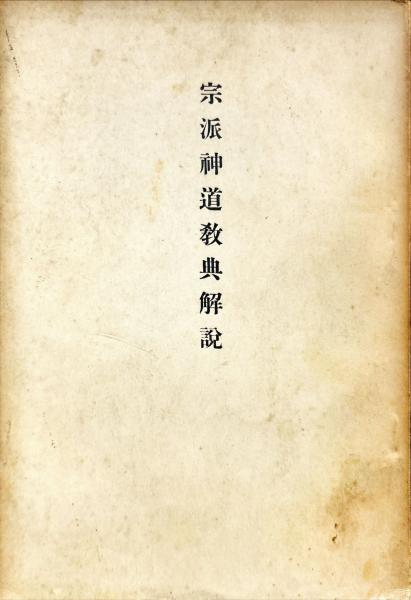 宗派神道教典解說